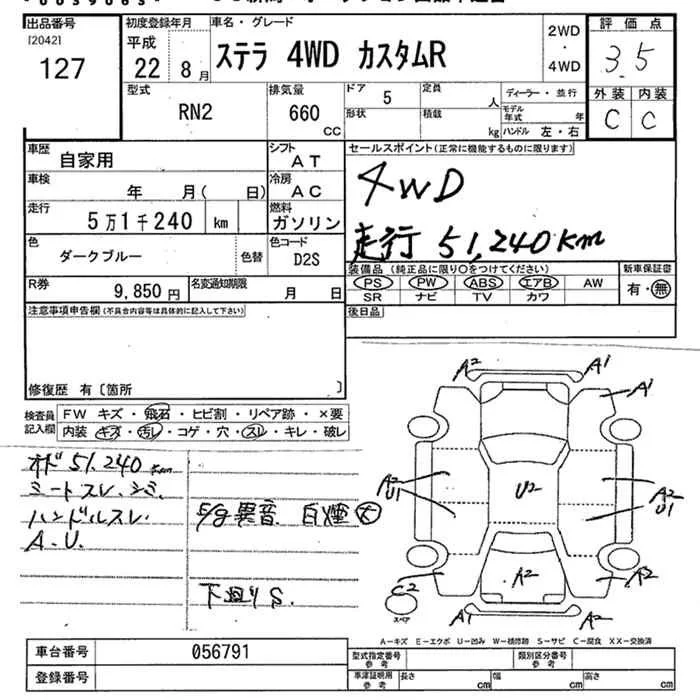 出品番号
[20421
127
初度登録年月
平成
22 8月
車名・グレード
ステラ 4WD カスタムR
2WD
・
4WD
評価点
3.5
外装 内装
C C
型式
RN2
排気量
660
CC
ドア
5
定員
人
形状
積載
kg
ディーラー・並行
モデル
年式 年
ハンドル 左・右
車歴
自家用
シフト
AT
車検
年 月( 日)
冷房
AC
走行
5万1千240 km
燃料
ガソリン
色
ダークブルー
色替
色コード
D2S
R券
9,850円
名変通知期限
月 日
セールスポイント(正常に機能するものに限ります)
4WD
走行 51,240km
装備品(純正品に限り○をつけてください)
PS PW ABS エアB AW
SR ナビ TV カワ
新車保証書
有・無
後日品
注意事項申告欄(不具合内容等は具体的に記入して下さい)
修復歴 有〔箇所 〕
検査員
記入欄
FW キズ・飛石・ヒビ割・リペア跡・×要
内装 キズ・汚レ・コゲ・穴・スレ・キレ・破レ
オド 51,240 km
シートスレ、シミ、
ハンドルスレ
A.U.
異音 白煙 大
下廻りS.
A2
A1
A1
A2
U1
U2
A2
U1
C2
スペア
A2
A2
A1
A2
A-キズ E-エクボ U-凹み W-補修跡 S-サビ C-腐食 XX-交換済
車台番号
056791
登録番号
型式指定番号
参考
類別区分番号
参考
車庫証明用
参考
長さ cm
幅 cm
高さ cm